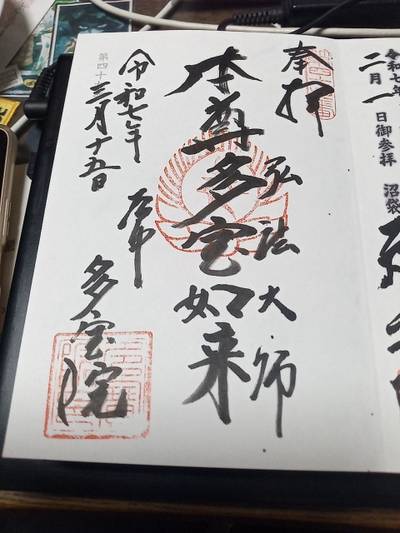 令和七年
二月一日御参拝 沼袋
奉拝
弘法大師
本尊多宝如来
令和七年
第四十
三月十五日
谷中
多宝院